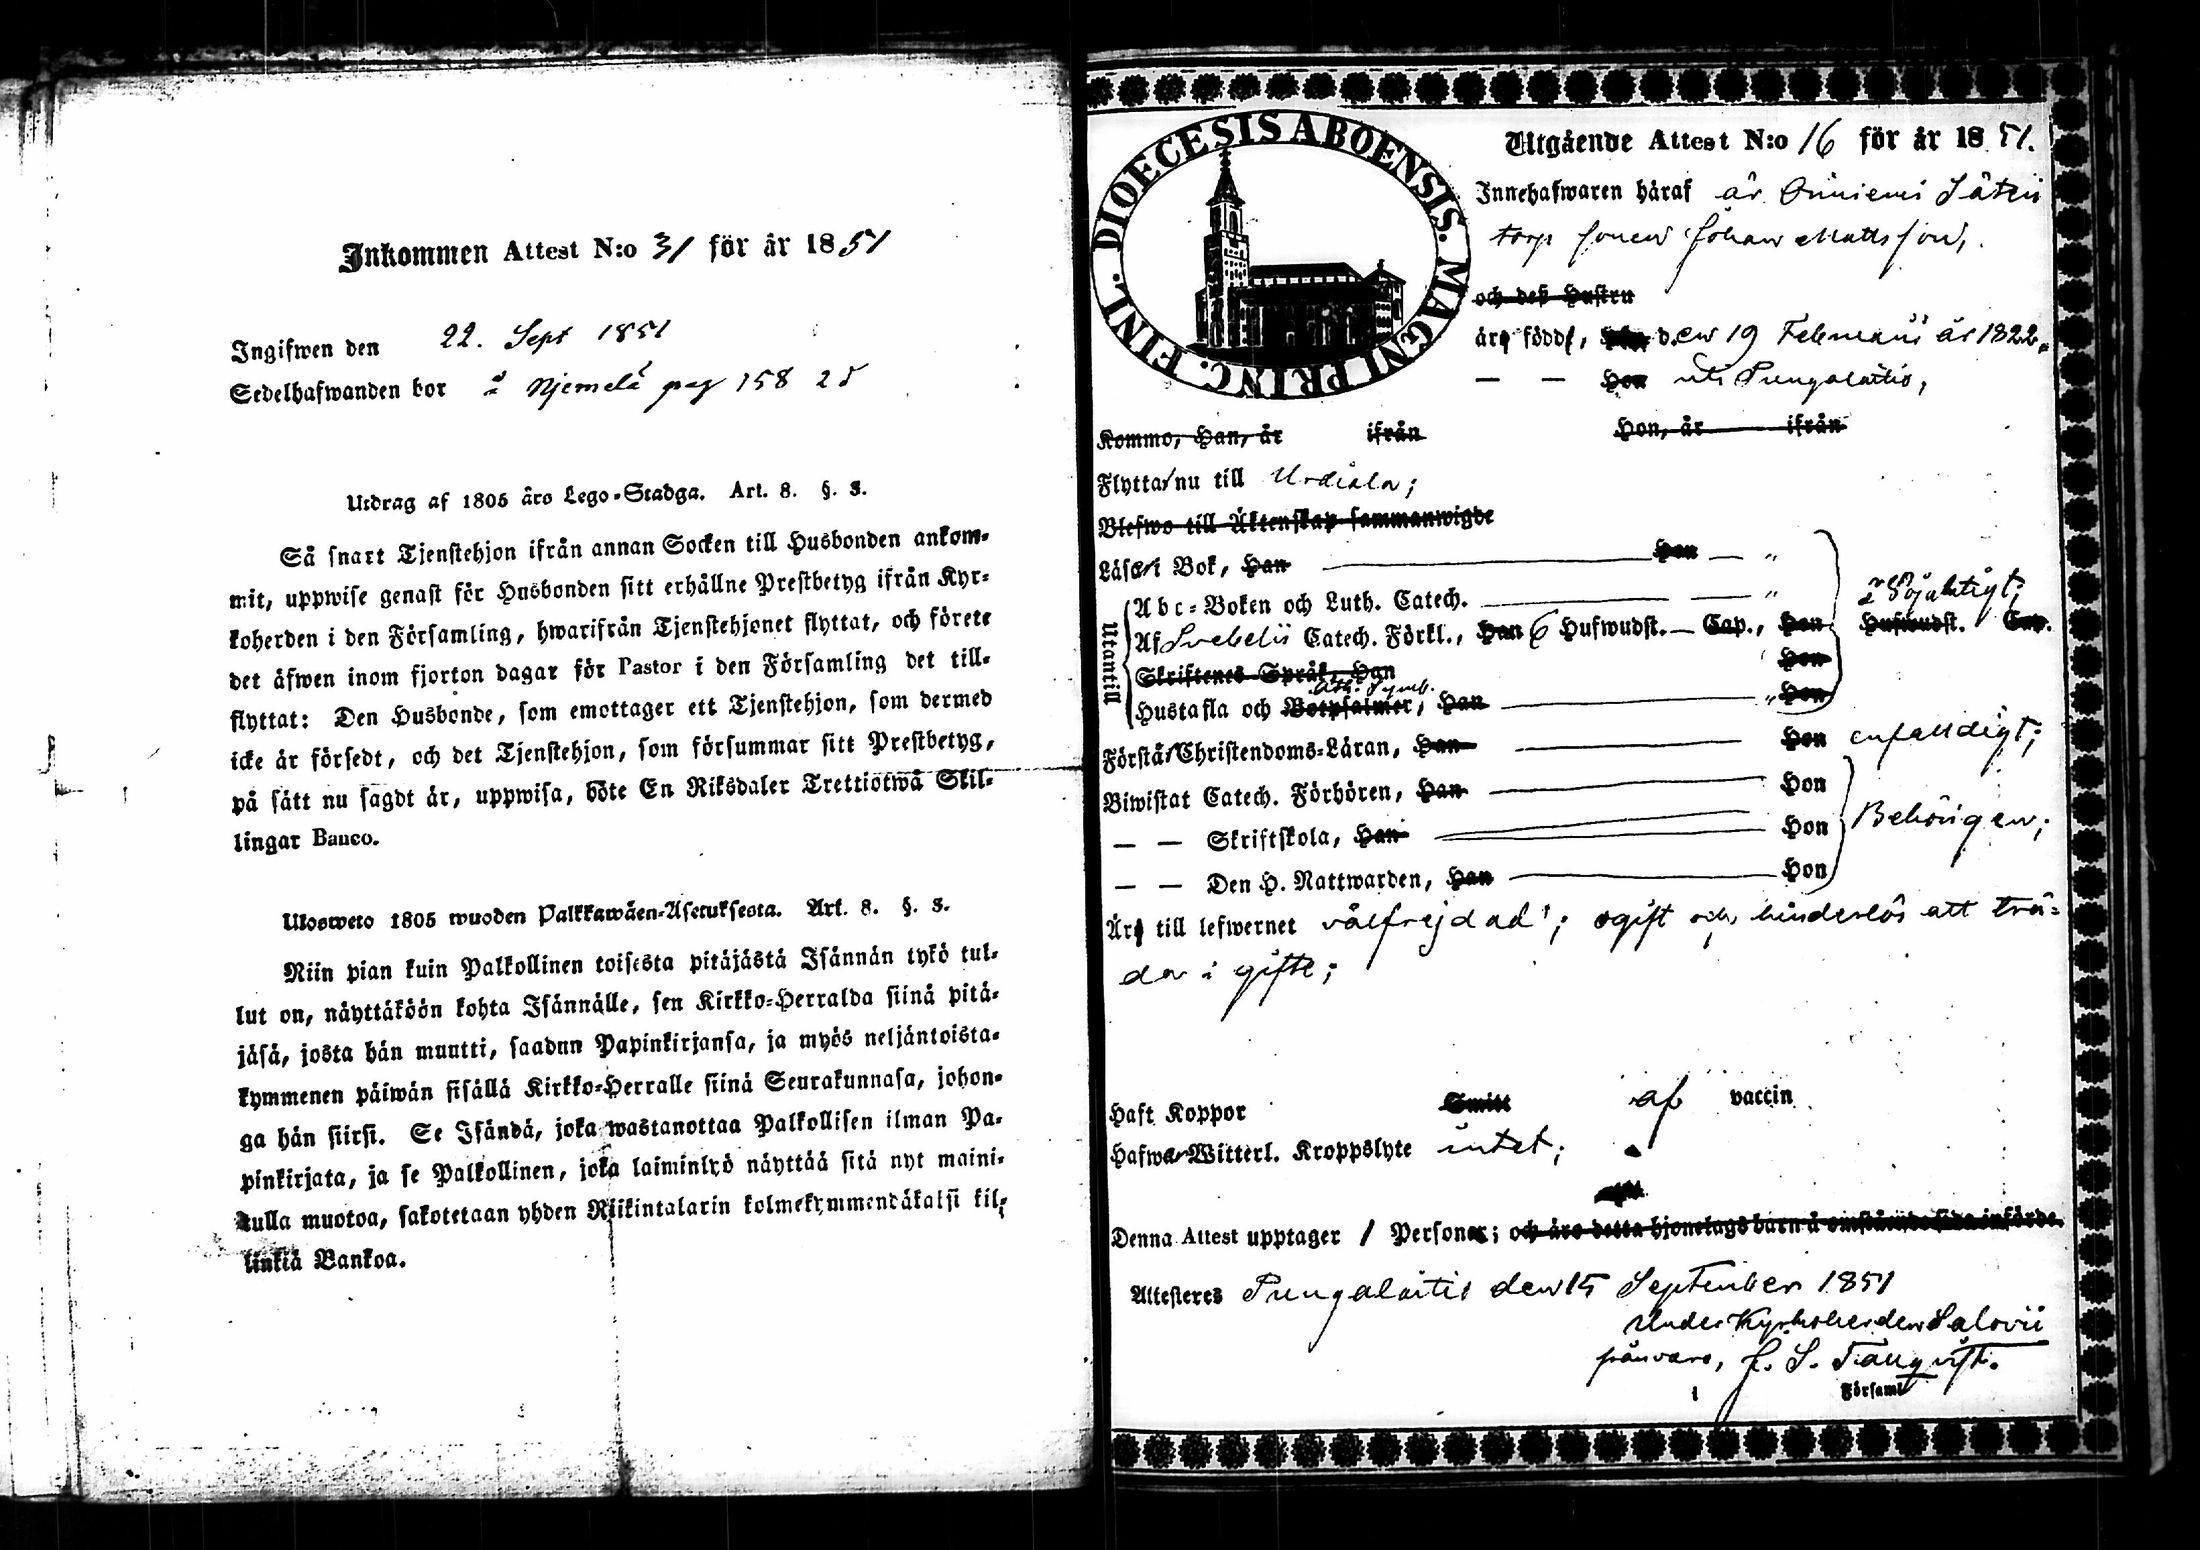 Inkommen Attest N:o 31 för år 1851
Ingifwen den 22. Sept 1851
Sedelhafwanden bor å Njemelä pag 158
Utdrag af 1805 års Lego-Stadga. Art. 8. §. 3.
Så snart Tjenstehjon ifrån annan Socken till Husbonden ankom-
mit, uppwise genast för Husbonden sitt erhållne Prestbetyg ifrån Kyr-
koherden i den Församling, hwarifrån Tjenstehjonet flyttat, och förete
det äfwen inom fjorton dagar för Pastor i den Församling det till-
flyttat: Den Husbonde, som emottager ett Tjenstehjon, som dermed
icke är försedt, och det Tjenstehjon, som försummar sitt Prestbetyg,
på sätt nu sagdt är, uppwisa, böte En Riksdaler Trettiotwå Skil-
lingar Banco.
Ulosweto 1805 wuoden Palkkawäen-Asetuksesta. Art. 8. §. 3.
Niin pian kuin Palkollinen toisesta pitäjästä Isännän tykö tul-
lut on, näyttäköön kohta Isännälle, sen Kirkko-Herralda siinä pitä-
jäsä, josta hän muutti, saadun Papinkirjansa, ja myös neljäntoista-
kymmenen päiwän sisällä Kirkko-Herralle siinä Seurakunnasa, johon-
ga hän siirsi. Se Isändä, joka wastanottaa Palkollisen ilman Pa-
pinkirjata, ja se Palkollinen, joka laiminlyö näyttää sitä nyt maini-
tulla muotoa, sakotetaan yhden Riikintalarin kolmekymmendäkaksi kil-
linkiä Bankoa.
DIOECESIS ABOENSIS. MAGNI PRINC. FINL.
Utgående Attest N:o 16 för år 1851.
Innehafwaren häraf är Säteri
torp sonen Johan Mattsson,
och deß Hustru
äro född, den 19 Februarii år 1822,
— — Hon uti Pungalaitio,
Kommo, Han, år ifrån Hon, år ifrån
Flytta nu till Urdiala;
Blefwo till Äktenskap sammanwigde
Läsa i Bok, Han Hon — "
Utantill
Abc-Boken och Luth. Catech. — "
Af Svebelii Catech. Förkl., Han 6 Hufwudst. — Cap., Hon Hufwudst. Cap.
Skriftenes Språk, Han Hon
Ath. Symb.
Hustafla och Botpsalmer, Han " Hon
Förstå Christendoms-Läran, Han Hon enfaldigt;
Biwistat Catech. Förhören, Han Hon
— — Skriftskola, Han Hon Behörigen;
— — Den H. Nattwarden, Han Hon
Äro till lefwernet välfrejdad; ogift och hinderlös att trä-
da i gifte;
Haft Koppor Smitt af vaccin
Hafwa Witterl. Kroppslyte intet;
Denna Attest upptager 1 Personer; och äro detta hjonelags barn å omstående sida införde.
Attesteres Pungalaitio den 15 September 1851
Under Kyrkoherden Salovii
frånvaro,
Församl